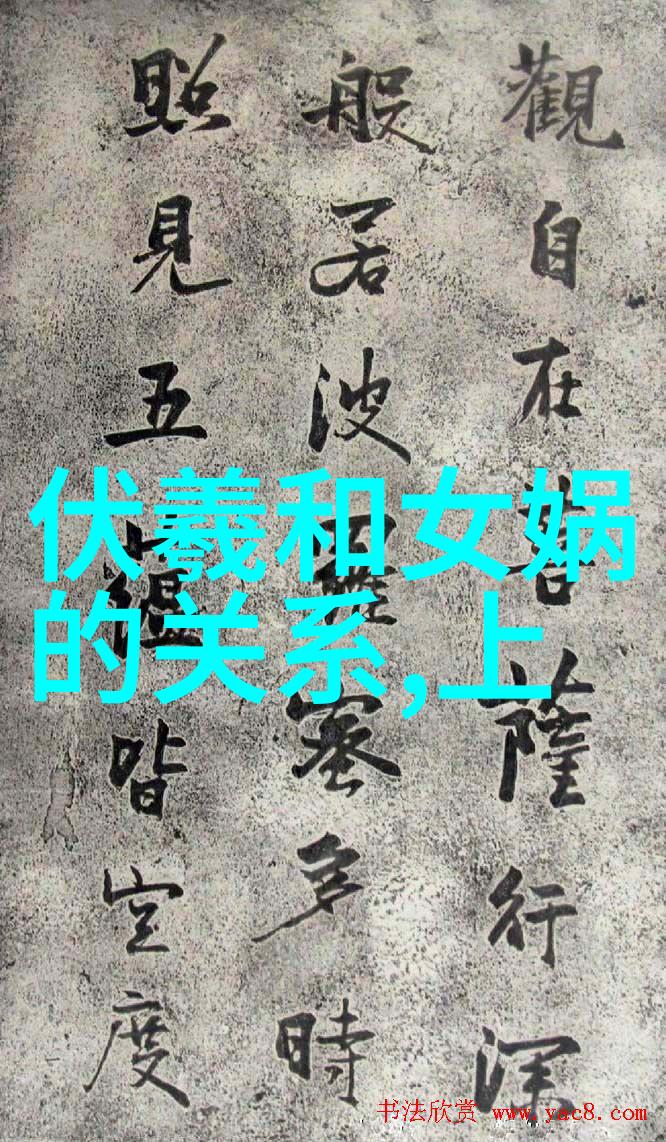 觀自在菩薩行深
般若波羅蜜多時
照見五蘊皆空度
伏羲和女娲
的关系,上
书法欣赏 www.yac8.com